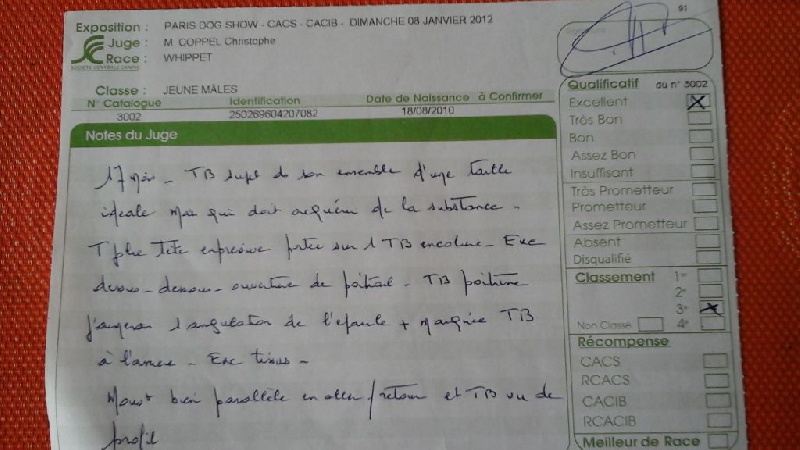 Exposition : PARIS DOG SHOW - CACS - CACIB - DIMANCHE 08 JANVIER 2012
Juge : M. COPPEL Christophe
Race : WHIPPET
SOCIETE CENTRALE CANINE
Classe : JEUNE MALES
N° Catalogue Identification Date de Naissance à Confirmer
3002 250269604207082 18/08/2010
Notes du Juge
17 mois - TB sujet de son ensemble d'une taille
idéale mais qui doit acquérir de la substance -
T plic tête expressive portée sur 1 TB encolure - Exc
dessus - dessous - ouverture de poitrail - TB poitrine
J'aimerais 1 angulation de l'épaule + marquée TB
à l'arrière - Exc tissus -
Mouvt bien parallèle en aller/retour et TB vu de
profil
91
Qualificatif du n° 3002
Excellent
Très Bon
Bon
Assez Bon
Insuffisant
Très Prometteur
Prometteur
Assez Prometteur
Absent
Disqualifié
Classement 1er
2e
3e
Non Classé 4e
Récompense
CACS
RCACS
CACIB
RCACIB
Meilleur de Race